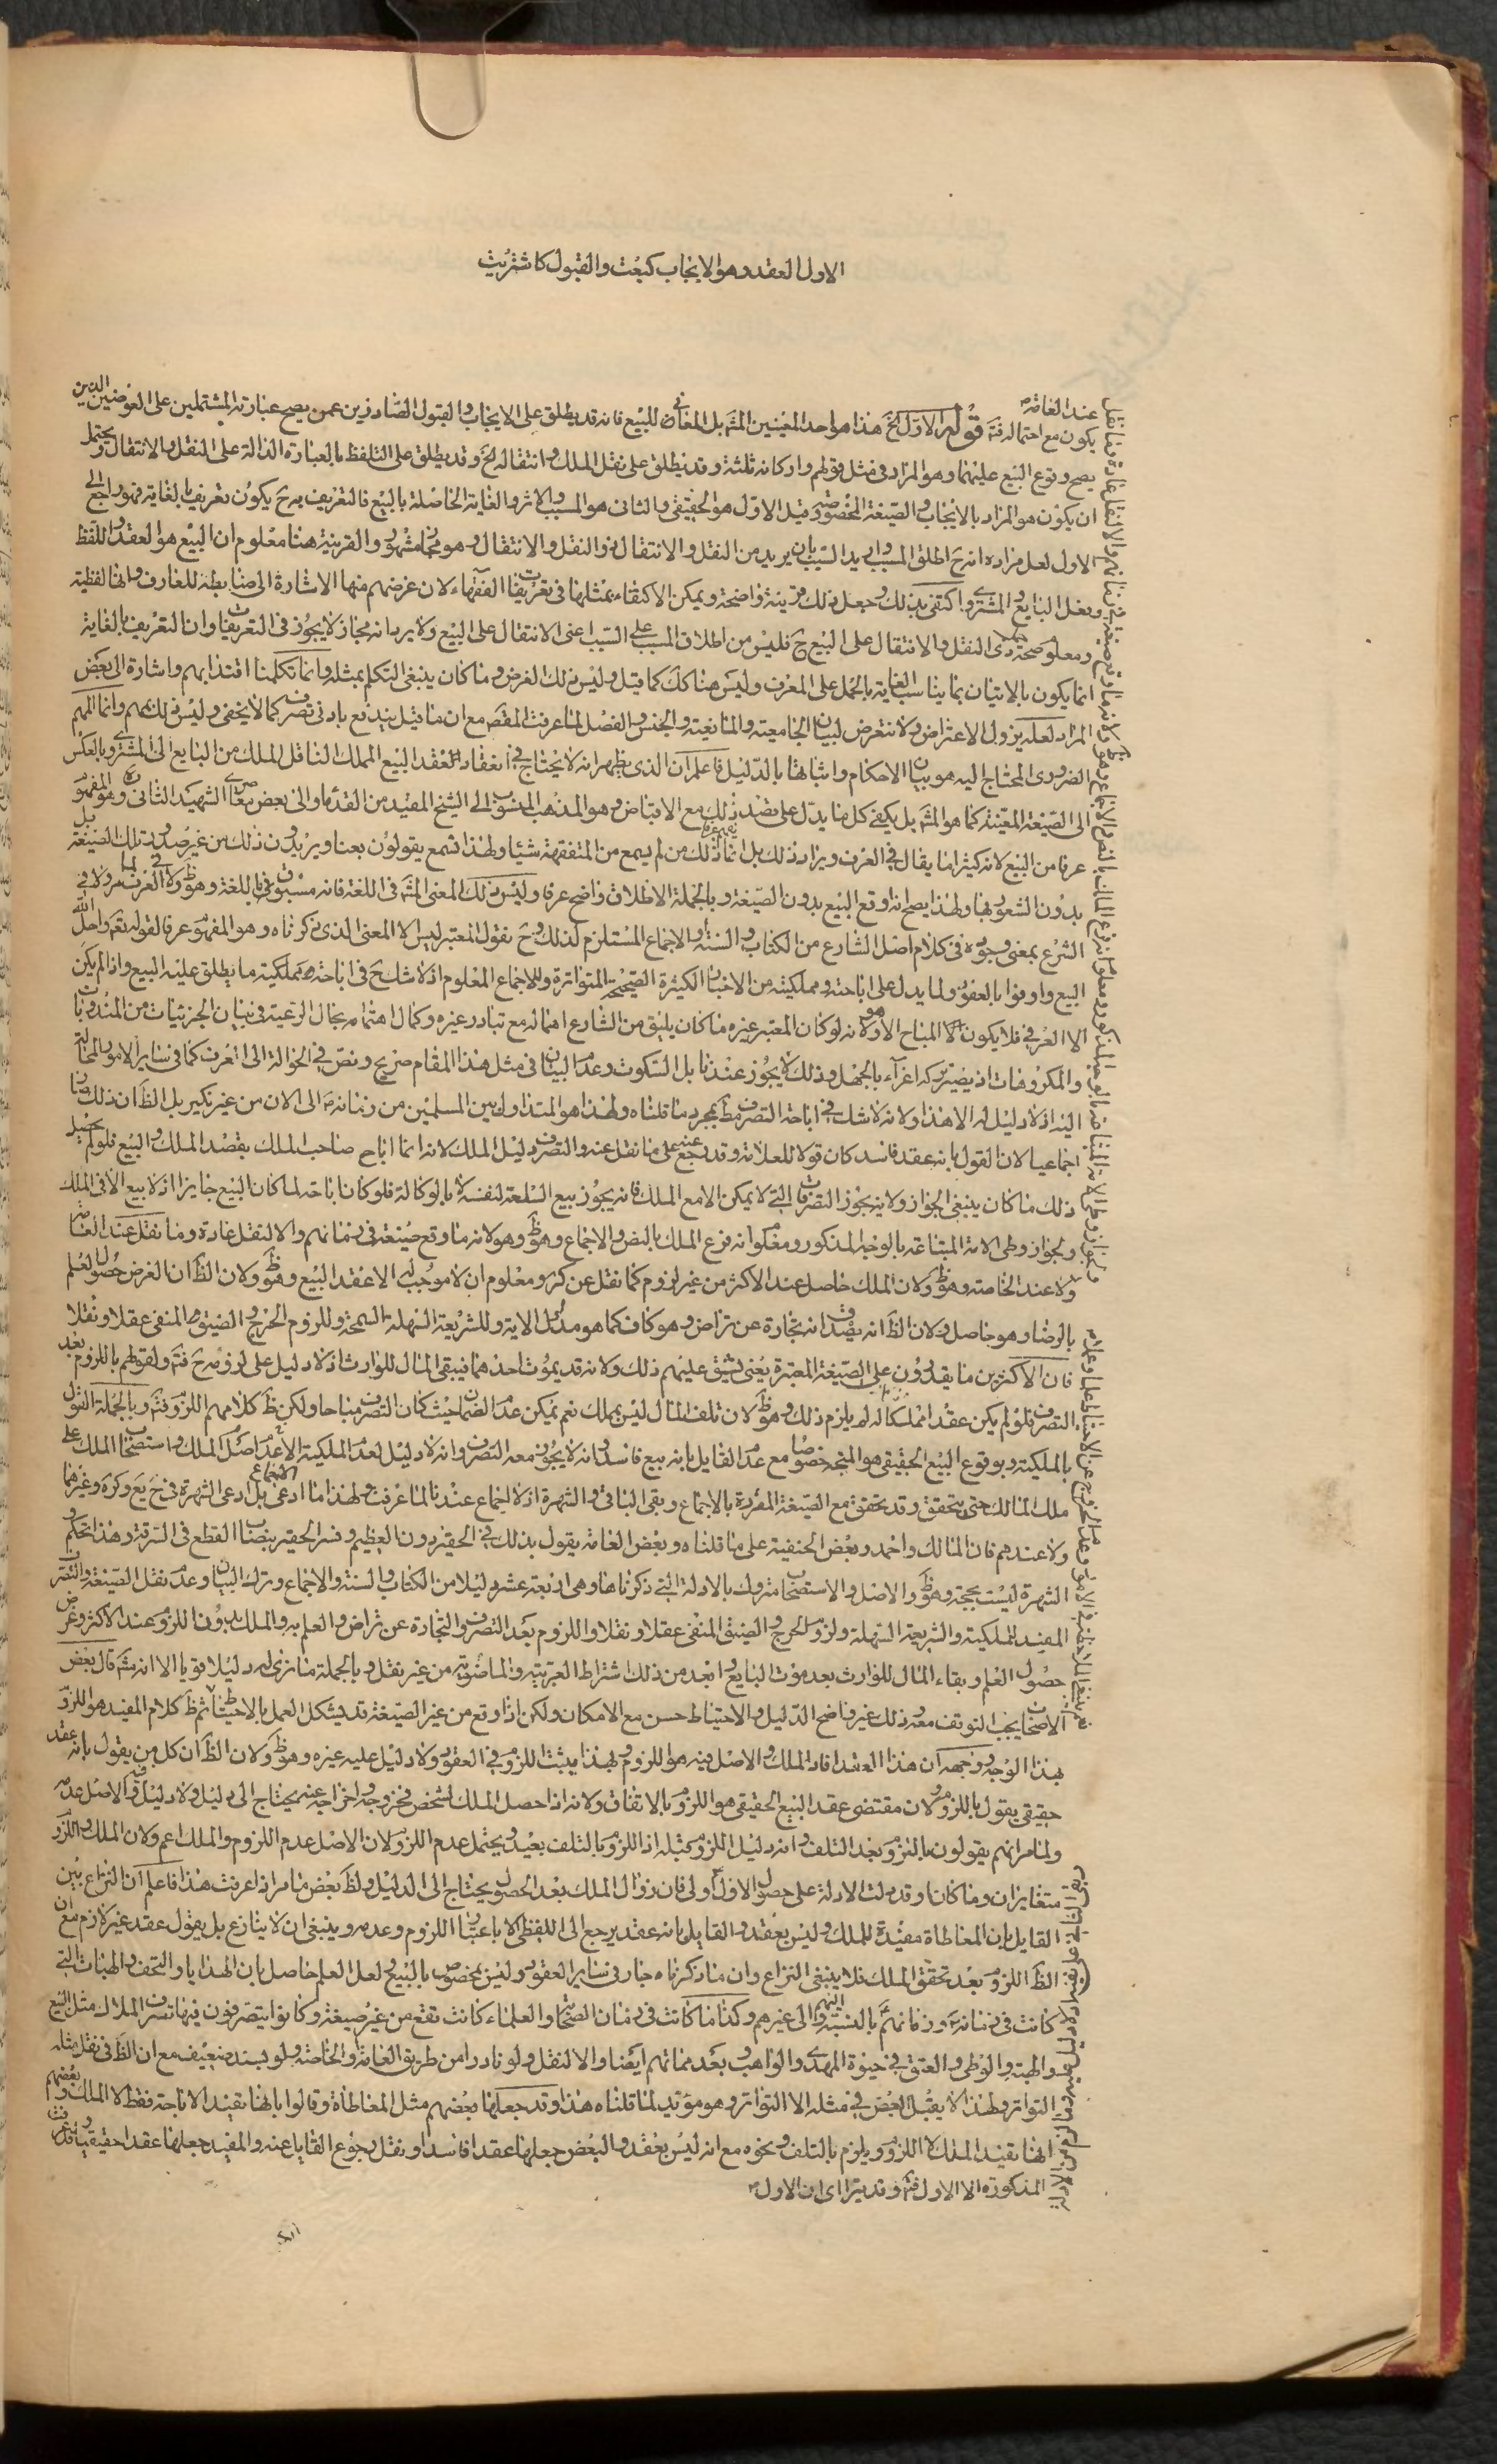 الاول العقد وهو الايجاب كبعت والقبول كاشتريت
عند العامة
يكون مع احتماله فتم قوله الاول الخ هذا هو احد المعنيين المشهـ بل المعاني للبيع فانه قد يطلق على الايجاب والقبول الصادرين عمن يصح عبارته المشتملين على العوضين الذين
يصح وقوع البيع عليهما وهو المراد في مثل قولهم واركانه ثلثة وقد يطلق على نقل الملك وانتقاله الخ وقد يطلق على التلفظ بالعبارة الدالة على النقل والانتقال ويحتمل
ان يكون هو المراد بالايجاب والصيغة المخصوصة قيل الاول هو الحقيقي والثاني هو المسبب والاثر والغاية الحاصلة بالبيع فالتعريف به ح يكون تعريفا بالغاية فهو راجع الى
الاول لعل مراده انه ح اطلق المسبب واريد السبب بان يريد من النقل والانتقال ذو النقل والانتقال وهو مجاز مشهور والقرينة هنا معلوم ان البيع هو العقد واللفظ
وفعل البايع والمشتري واكتفى بذلك وجعل ذلك قرينة واضحة ويمكن الاكتفاء بمثلها في تعريفات الفقهاء لان غرضهم منها الاشارة الى ضابطة للعارف وانها لفظية
ومعلوم صحة حمل ذي النقل والانتقال على البيع ح فليس من اطلاق المسبب على السبب اعني الانتقال على البيع ولا يرد انه مجاز لا يجوز في التعريفات وان التعريف بالغاية
انما يكون بالاتيان بما يناسب الغاية بالحمل على المعرف وليس هنا كك كما قيل وليس ذلك الغرض وما كان ينبغي التكلم بمثله وانما تكلمنا اقتداء بهم واشارة الى بعض
المراد لعله يزول الاعتراض ولا نتعرض لبيان الجامعية والمانعية والجنس والفصل لما عرفت المقصد مع ان ما قيل يندفع بادنى تصرف كما لا يخفى وليس ذلك بمهم وانما المهم
الضروري المحتاج اليه هو بيان الاحكام واثباتها بالدليل فاعلم ان الذي يظهر انه لا يحتاج في انعقاد العقد البيع المملك الناقل الملك من البايع الى المشتري وبالعكس
الى الصيغة المعينة كما هو المشهـ بل يكفي كل ما يدل على قصد ذلك مع الاقباض وهو المذهب المنسوب الى الشيخ المفيد من القدماء والى بعض معاصري الشهيد الثاني وهو المفهوم
عرفا من البيع لانه كثيرا ما يقال في العرف ويراد ذلك بل انما ذلك من لم يسمع من المتفقهة شيئا ولهذا تسمع يقولون بعنا ويريدون ذلك من غير صدور تلك الصيغة
بدون الشعور بها ولهذا يصح انه اوقع البيع بدون الصيغة وبالجملة الاطلاق واضح عرفا وليس ذلك المعنى المشهـ في اللغة فانه مسبوق باللغة وهو ظ ولا في العرف لما مر ولا في
الشرع بمعنى وجوده في كلام اصل الشارع من الكتاب والسنة والاجماع المستلزم لذلك وح نقول المعتبر ليس الا المعنى الذي ذكرناه وهو المفهوم عرفا لقوله تعم واحل الله
البيع واوفوا بالعقود ولما يدل على اباحته ومملكيته من الاخبار الكثيرة الصحيحة المتواترة وللاجماع المعلوم اذ لا شك ح في اباحته ومملكيته ما يطلق عليه البيع واذا لم يكن
الا العرفي فلا يكون الا المباح الا هو ولانه لو كان المعتبر غيره ما كان يليق من الشارع اهماله مع تبادر غيره وكمال اهتمامه بحال الرعية في بيان الجزئيات من المندوبات
والمكروهات اذ يصير تركه اغراء بالجهل وذلك لا يجوز عندنا بل السكوت وعدم البيان في مثل هذا المقام صريح ونص في الحوالة الى العرف كما في ساير الامور المحالة
اليه اذ لا دليل له الا هذا ولانه لا شك في اباحة التصرف مط بمجرد ما قلناه ولهذا هو المتداول بين المسلمين من زمانه ص الى الان من غير نكير بل الظ ان ذلك صار
اجماعيا لان القول بانه عقد فاسد كان قولا للعلامة وقد رجع عنه على ما نقل عنه والتصرف دليل الملك لانه انما اباح صاحب الملك بقصد الملك والبيع فلو لم يحصل
ذلك ما كان ينبغي الجواز ولانه يجوز التصرفات التي لا يمكن الا مع الملك فانه يجوز بيع السلعة لنفسه لا بالوكالة فلو كان اباحة لما كان البيع جايزا اذ لا بيع الا في الملك
ويجوز وطي الامة المبتاعة بالوجه المذكور ومعلوم انه فرع الملك بالنص والاجماع وهو ظ وهو لانه ما وقع صيغة في زمانهم والا لنقل عادة وما نقل عند العامة
ولا عند الخاصة وهو ظ ولان الملك حاصل عند الاكثر من غير لزوم كما نقل عن كره ومعلوم ان لا موجب له الا عقد البيع وهو ظ ولان الظ ان الغرض حصول العلم
بالرضا وهو حاصل ولان الظ انه يصدق انه تجارة عن تراض وهو كاف كما هو مدلول الاية وللشريعة السهلة السمحة وللزوم الحرج والضيق المنفي عقلا ونقلا
فان الاكثرين ما يقدرون على الصيغة المعتبرة يعني يشق عليهم ذلك ولانه قد يموت احدهما فيبقى المال للوارث اذ لا دليل على لزومه ح فتم ولقولهم باللزوم بعد
التصرف فلو لم يكن عقدا مملكا له لم يلزم ذلك وهو ظ لان تلف المال ليس بملك نعم يمكن عدم الضمان حيث كان التصرف مباحا ولكن ظ كلامهم اللزوم فتم وبالجملة القول
بالملكية وبوقوع البيع الحقيقي هو المتجه خصوصا مع عدم القايل بانه بيع فاسد وانه لا يجوز معه التصرف وانه لا دليل لعدم الملكية الا عدم اصل الملك واستصحاب الملك على
ملك المالك حتى يتحقق وقد تحقق مع الصيغة المقررة بالاجماع وبقي الباقي والشهرة اذ لا اجماع عندنا لما عرفت ولهذا ما ادعى الاجماع بل ادعى الشهرة في ح يع وكره وغيرهما
ولا عندهم فان المالك واحمد وبعض الحنفية على ما قلناه وبعض العامة يقول بذلك في الحقير دون العظيم وفسر الحقير بنصاب القطع في السرقة وهذا تحكم و
الشهرة ليست بحجة وهو ظ والاصل والاستصحاب متروك بالادلة التي ذكرناها وهي اربعة عشر دليلا من الكتاب والسنة والاجماع وترك البيان وعدم نقل الصيغة والتصرف
المفيد للملكية والشريعة السهلة ولزوم الحرج والضيق المنفي عقلا ونقلا واللزوم بعد التصرف والتجارة عن تراض والعلم به والملك بدون اللزوم عند الاكثر وغرض
حصول العلم وبقاء المال للوارث بعد موت البايع وابعد من ذلك اشتراط العربية والماضوية من غير نقل وبالجملة ما نرى له دليلا قويا الا انه مشهـ قال بعض
الاصحاب يجب التوقف معه وذلك غير واضح الدليل والاحتياط حسن مع الامكان ولكن اذا وقع من غير الصيغة قد يشكل العمل بالاحتياط ثم ظ كلام المفيد هو اللزوم
بهذا الوجه وجهه ان هذا العقد افاد الملك والاصل فيه هو اللزوم وبهذا يثبت اللزوم في العقود ولا دليل عليه غيره وهو ظ ولان الظ ان كل من يقول بانه عقد
حقيقي يقول باللزوم ولان مقتضى عقد البيع الحقيقي هو اللزوم بالاتفاق ولانه اذا حصل الملك لشخص فخروجه واخراجه عنه يحتاج الى دليل ولا دليل والاصل عدمه
ولما مر انهم يقولون باللزوم بعد التلف وانه دليل اللزوم قبله اذ اللزوم بالتلف بعيد ويحتمل عدم اللزوم لان الاصل عدم اللزوم والملك اعم ولان الملك واللزوم
متغايران وما كانا وقد دلت الادلة على حصول الاول ولي فان زوال الملك بعد الحصول يحتاج الى الدليل ولظ بعض ما مر اذا عرفت هذا فاعلم ان النزاع بين
القايل بان المعاطاة مفيدة للملك وليس بعقد والقايل بانه عقد يرجع الى اللفظي لا باعتبار اللزوم وعدمه وينبغي ان لا ينازع بل يقول عقد غير لازم مع ان
الظ اللزوم بعد تحقق الملك فلا ينبغي النزاع وان ما ذكرناه جار في ساير العقود وليس بمخصوص بالبيع ولعل العلم حاصل بان الهدايا والتحف والهبات التي
كانت في زمانه ص وزمانهم ع بالنسبة اليهم والى غيرهم وكذا ما كانت في زمان الصحابة والعلماء كانت تقع من غير صيغة وكانوا يتصرفون فيها تصرف الملاك مثل البيع
والهبة والوطي والعتق في حيوة المهدي والواهب وبعد مماتهم ايضا والا لنقل ولو نادرا من طريق العامة والخاصة ولو بسند ضعيف مع ان الظ في نقل مثله
التواتر ولهذا لا يقبل البعض في مثله الا التواتر وهو مؤيد لما قلناه هذا وقد جعلها بعضهم مثل المعاطاة وقالوا بانها تفيد الاباحة فقط لا الملك وبعضهم
انها تفيد الملك لا اللزوم ويلزم بالتلف ونحوه مع انه ليس بعقد والبعض جعلها عقدا فاسدا ونقل رجوع القايل عنه والمفيد جعلها عقدا حقيقيا وقد عرفت
المذكورة الا الاول فتم وقد يتراءى ان الاول